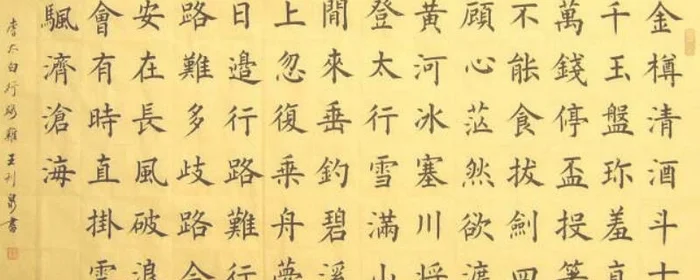 金樽清酒斗十
千玉盤珎羞直
萬錢停盃投箸
不能食拔劍四
顧心茫然欲渡
黃河冰塞川將
登太行雪滿山
閒來垂釣碧溪
上忽復乘舟夢
日邊行路難行
路難多歧路今
安在長風破浪
會有時直掛雲
颿濟滄海
李太白行路難 王刊 書